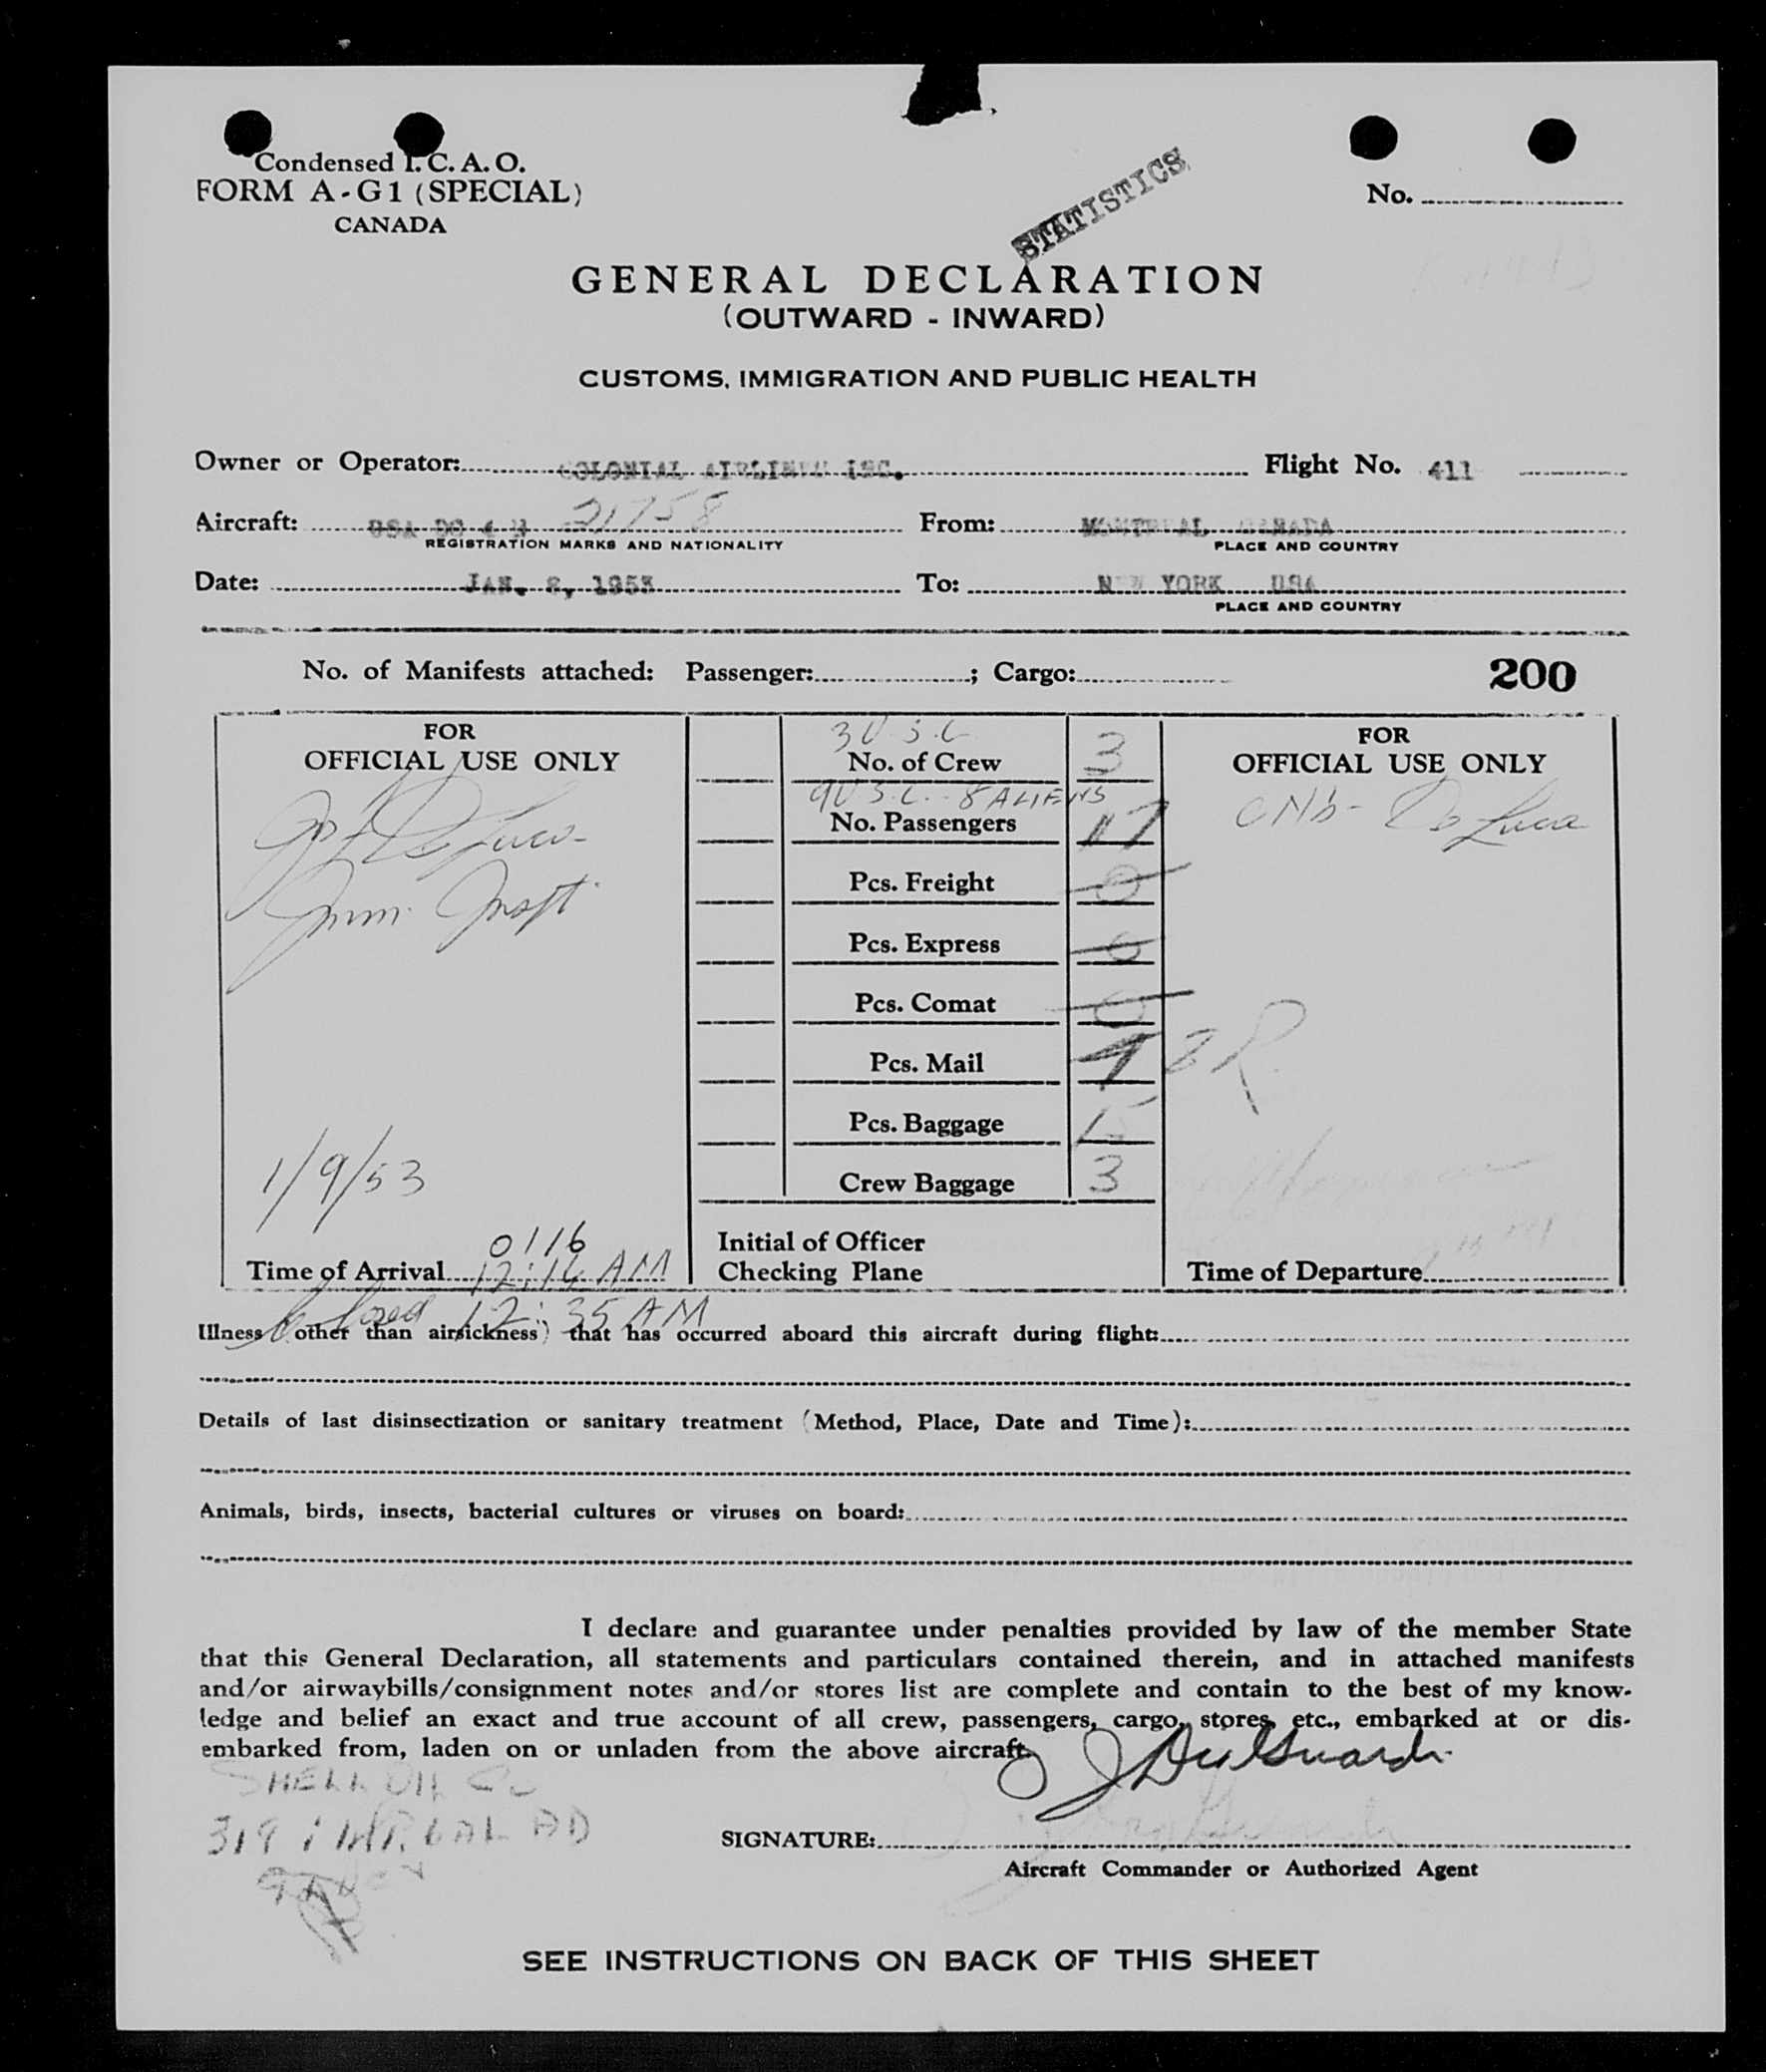 Condensed I. C. A. O.
FORM A-G1 (SPECIAL)
CANADA
No.
STATISTICS
GENERAL DECLARATION
(OUTWARD - INWARD)
CUSTOMS, IMMIGRATION AND PUBLIC HEALTH
Owner or Operator: COLONIAL AIRLINES INC. Flight No. 411
Aircraft: USA DC 4 N 21758 From: MONTREAL CANADA
REGISTRATION MARKS AND NATIONALITY PLACE AND COUNTRY
Date: JAN. 8, 1953 To: NEW YORK USA
PLACE AND COUNTRY
No. of Manifests attached: Passenger: ; Cargo: 200
FOR
OFFICIAL USE ONLY
Imm. Inspt.
1/9/53
0116
Time of Arrival 12:16 AM
3 U.S.C
No. of Crew 3
9 U S.C. - 8 ALIENS
No. Passengers 17
Pcs. Freight 0
Pcs. Express 0
Pcs. Comat 0
Pcs. Mail
Pcs. Baggage 15
Crew Baggage 3
Initial of Officer
Checking Plane
FOR
OFFICIAL USE ONLY
De Luca
Time of Departure
12:35 AM
Illness (other than airsickness) that has occurred aboard this aircraft during flight:
Details of last disinsectization or sanitary treatment (Method, Place, Date and Time):
Animals, birds, insects, bacterial cultures or viruses on board:
I declare and guarantee under penalties provided by law of the member State
that this General Declaration, all statements and particulars contained therein, and in attached manifests
and/or airwaybills/consignment notes and/or stores list are complete and contain to the best of my know-
ledge and belief an exact and true account of all crew, passengers, cargo, stores, etc., embarked at or dis-
embarked from, laden on or unladen from the above aircraft.
SHELL OIL CO
SIGNATURE:
Aircraft Commander or Authorized Agent
SEE INSTRUCTIONS ON BACK OF THIS SHEET